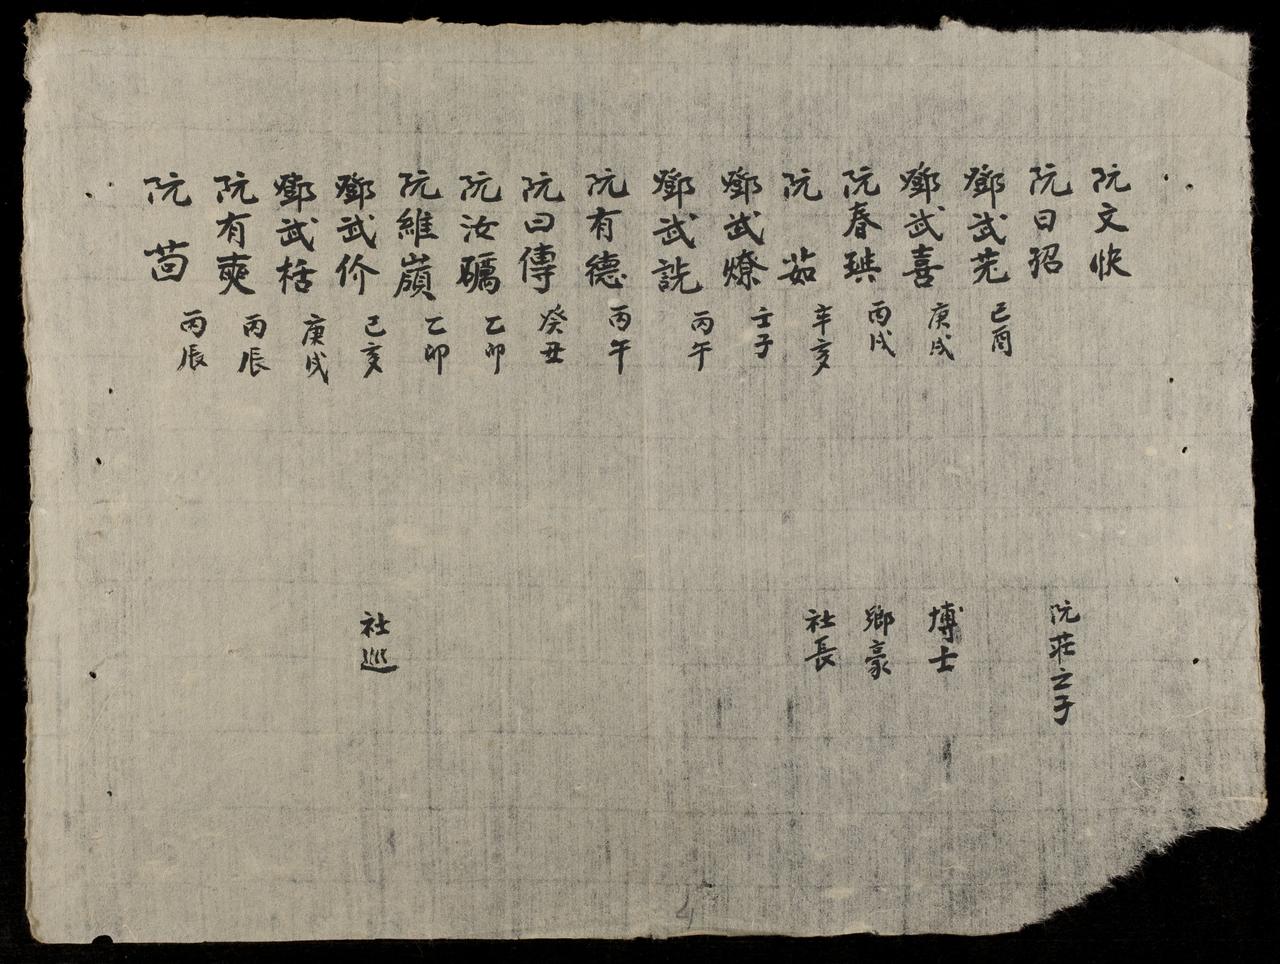 阮文快
阮曰招 阮莊之子
鄧武芫 己酉
鄧武喜 庚戌 博士
阮春琠 丙戌 鄉豪
阮茹 辛亥 社長
鄧武燎 壬子
鄧武詵 丙午
阮有德 丙午
阮曰傳 癸丑
阮汝礪 乙卯
阮維嶺 乙卯
鄧武价 己亥 社巡
鄧武栝 庚戌
阮有奭 丙辰
阮茴 丙辰